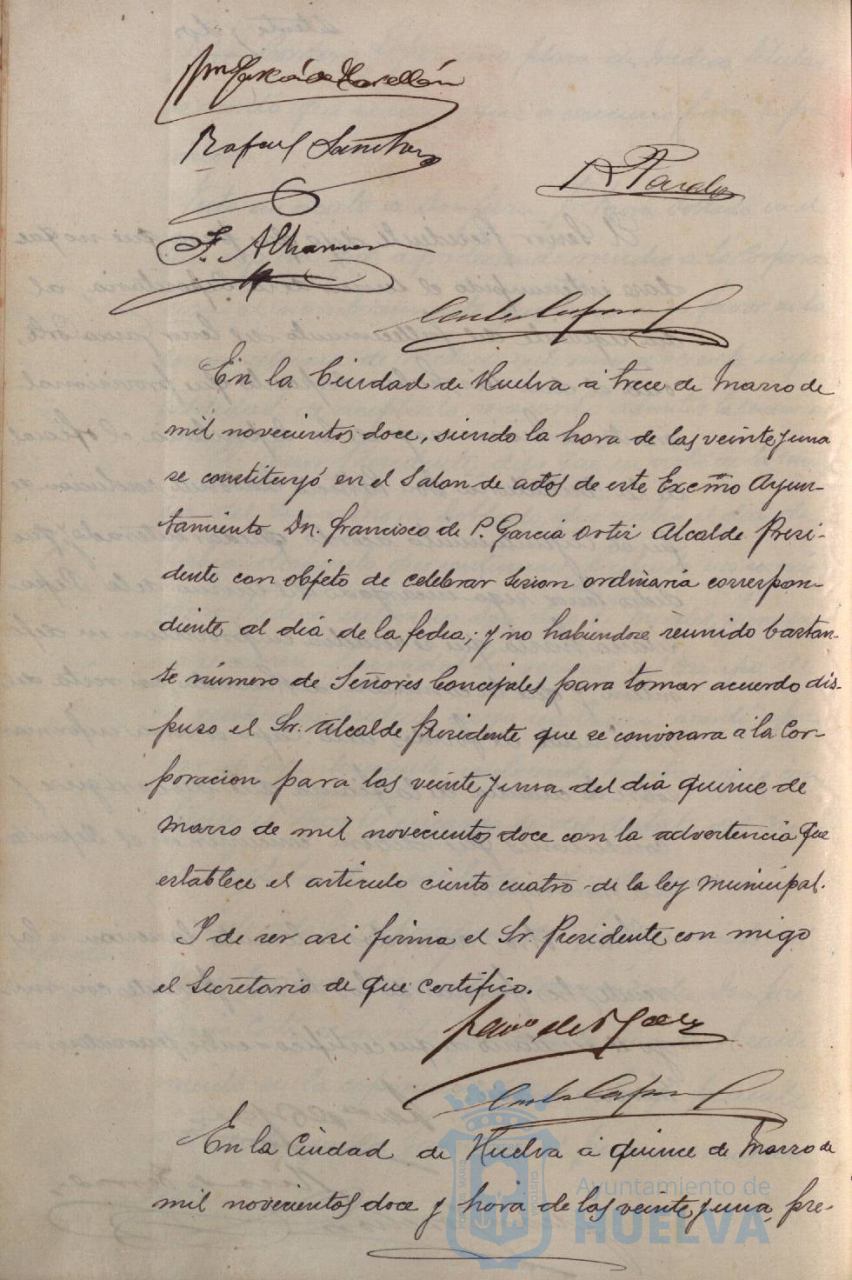 Rafael Sanchez
R Pardo
F. Alhamar
En la Ciudad de Huelva á trece de Marzo de
mil novecientos doce, siendo la hora de las veinte y una
se constituyó en el Salon de actos de este Excmo Ayun-
tamiento Dn. Francisco de P. García Ortiz Alcalde Presi-
dente con objeto de celebrar sesion ordinaria correspon-
diente al dia de la fecha; y no habiendose reunido bastan-
te número de Señores Concejales para tomar acuerdo dis-
puso el Sr. Alcalde Presidente que se convocara á la Cor-
poracion para las veinte y una del dia quince de
Marzo de mil novecientos doce con la advertencia que
establece el articulo ciento cuatro de la ley Municipal.
Y de ser asi firma el Sr. Presidente con migo
el Secretario de que certifico.
En la Ciudad de Huelva á quince de Marzo de
mil novecientos doce y hora de las veinte y una, pre-
Ayuntamiento de
HUELVA